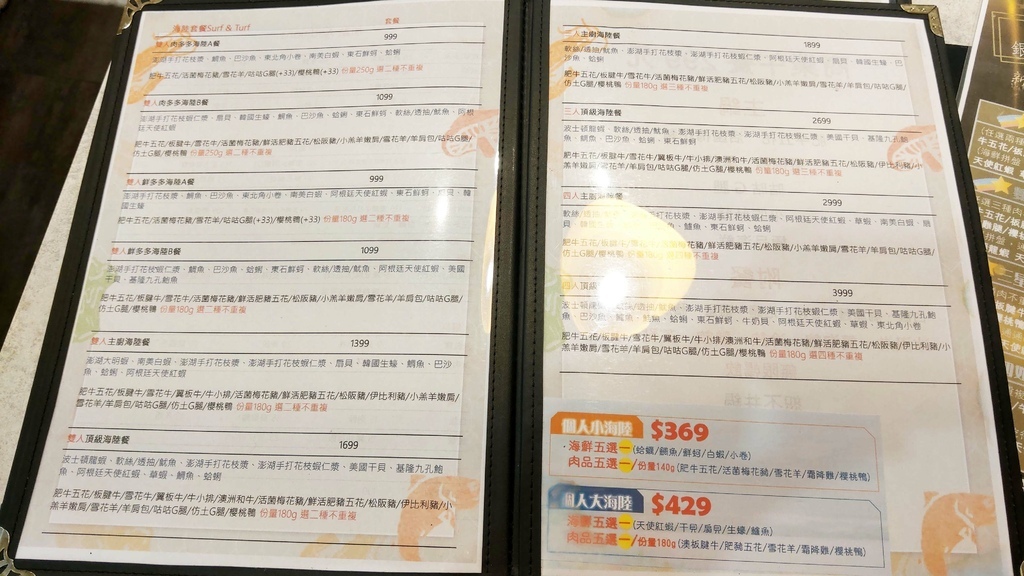 海陸套餐Surf & Turf 套餐
雙人肉多多海陸A餐 999
澎湖手打花枝漿、鯛魚、巴沙魚、東北角小卷、南美白蝦、東石鮮蚵、蛤蜊
肥牛五花/活菌梅花豬/雪花羊/咕咕G腿(+33)/櫻桃鴨(+33) 份量250g 選二種不重複
雙人肉多多海陸B餐 1099
澎湖手打花枝蝦仁漿、扇貝、韓國生蠔、鯛魚、巴沙魚、蛤蜊、東石鮮蚵、軟絲/透抽/魷魚、阿根
廷天使紅蝦
肥牛五花/板腱牛/雪花牛/活菌梅花豬/鮮活肥豬五花/松阪豬/小羔羊嫩肩/雪花羊/羊肩包/咕咕G腿
/仿土G腿/櫻桃鴨 份量250g 選二種不重複
雙人鮮多多海陸A餐 999
澎湖手打花枝漿、鯛魚、巴沙魚、東北角小卷、南美白蝦、阿根廷天使紅蝦、東石鮮蚵、扇貝、韓
國生蠔
肥牛五花/活菌梅花豬/雪花羊/咕咕G腿(+33)/櫻桃鴨(+33) 份量180g 選二種不重複
雙人鮮多多海陸B餐 1099
澎湖手打花枝蝦仁漿、鯛魚、巴沙魚、蛤蜊、東石鮮蚵、軟絲/透抽/魷魚、阿根廷天使紅蝦、美國
干貝、基隆九孔鮑魚
肥牛五花/板腱牛/雪花牛/活菌梅花豬/鮮活肥豬五花/松阪豬/小羔羊嫩肩/雪花羊/羊肩包/咕咕G腿/
仿土G腿/櫻桃鴨 份量180g 選二種不重複
雙人主廚海陸餐 1399
澎湖大明蝦、南美白蝦、澎湖手打花枝漿、澎湖手打花枝蝦仁漿、扇貝、韓國生蠔、鯛魚、巴沙
魚、蛤蜊、阿根廷天使紅蝦
肥牛五花/板腱牛/雪花牛/翼板牛/牛小排/活菌梅花豬/鮮活肥豬五花/松阪豬/伊比利豬/小羔羊嫩肩/
雪花羊/羊肩包/咕咕G腿/仿土G腿/櫻桃鴨 份量180g 選二種不重複
雙人頂級海陸餐 1699
波士頓龍蝦、軟絲/透抽/魷魚、澎湖手打花枝漿、澎湖手打花枝蝦仁漿、美國干貝、基隆九孔鮑
魚、阿根廷天使紅蝦、草蝦、鯛魚、蛤蜊
肥牛五花/板腱牛/雪花牛/翼板牛/牛小排/澳洲和牛/活菌梅花豬/鮮活肥豬五花/松阪豬/伊比利豬/小
羔羊嫩肩/雪花羊/羊肩包/咕咕G腿/仿土G腿/櫻桃鴨 份量180g 選二種不重複
三人主廚海陸餐 1899
軟絲/透抽/魷魚、澎湖手打花枝漿、澎湖手打花枝蝦仁漿、阿根廷天使紅蝦、扇貝、韓國生蠔、巴
沙魚、蛤蜊
肥牛五花/板腱牛/雪花牛/活菌梅花豬/鮮活肥豬五花/松阪豬/小羔羊嫩肩/雪花羊/羊肩包/咕咕G腿/
仿土G腿/櫻桃鴨 份量180g 選三種不重複
三人頂級海陸餐 2699
波士頓龍蝦、軟絲/透抽/魷魚、澎湖手打花枝漿、澎湖手打花枝蝦仁漿、美國干貝、基隆九孔鮑
魚、巴沙魚、蛤蜊、東石鮮蚵
肥牛五花/板腱牛/雪花牛/翼板牛/牛小排/澳洲和牛/活菌梅花豬/鮮活肥豬五花/松阪豬/伊比利豬/小
羔羊嫩肩/雪花羊/羊肩包/咕咕G腿/仿土G腿/櫻桃鴨 份量180g 選三種不重複
四人主廚海陸餐 2999
軟絲/透抽/魷魚、澎湖手打花枝漿、澎湖手打花枝蝦仁漿、阿根廷天使紅蝦、草蝦、南美白蝦、扇
貝、韓國生蠔、鱸魚、東石鮮蚵、蛤蜊
肥牛五花/板腱牛/雪花牛/活菌梅花豬/鮮活肥豬五花/松阪豬/小羔羊嫩肩/雪花羊/羊肩包/咕咕G腿
/仿土G腿/櫻桃鴨 份量180g 選四種不重複
四人頂級 3999
波士頓龍蝦、軟絲/透抽/魷魚、澎湖手打花枝漿、澎湖手打花枝蝦仁漿、美國干貝、基隆九孔鮑
魚、巴沙魚、鯛魚、蛤蜊、東石鮮蚵、牛奶貝、阿根廷天使紅蝦、草蝦、東北角小卷
肥牛五花/板腱牛/雪花牛/翼板牛/牛小排/澳洲和牛/活菌梅花豬/鮮活肥豬五花/松阪豬/伊比利豬/小
羔羊嫩肩/雪花羊/羊肩包/咕咕G腿/仿土G腿/櫻桃鴨 份量180g 選四種不重複
個人小海陸 $369
・海鮮五選一(蛤蠣/鯛魚/鮮蚵/白蝦/小卷)
肉品五選一/份量140g (肥牛五花/活菌梅花豬/雪花羊/霜降雞/櫻桃鴨)
個人大海陸 $429
海鮮五選一(天使紅蝦/干貝/扇貝/生蠔/鱸魚)
肉品五選一/份量180g (澳板腱牛/肥豬五花/雪花羊/霜降雞/櫻桃鴨)